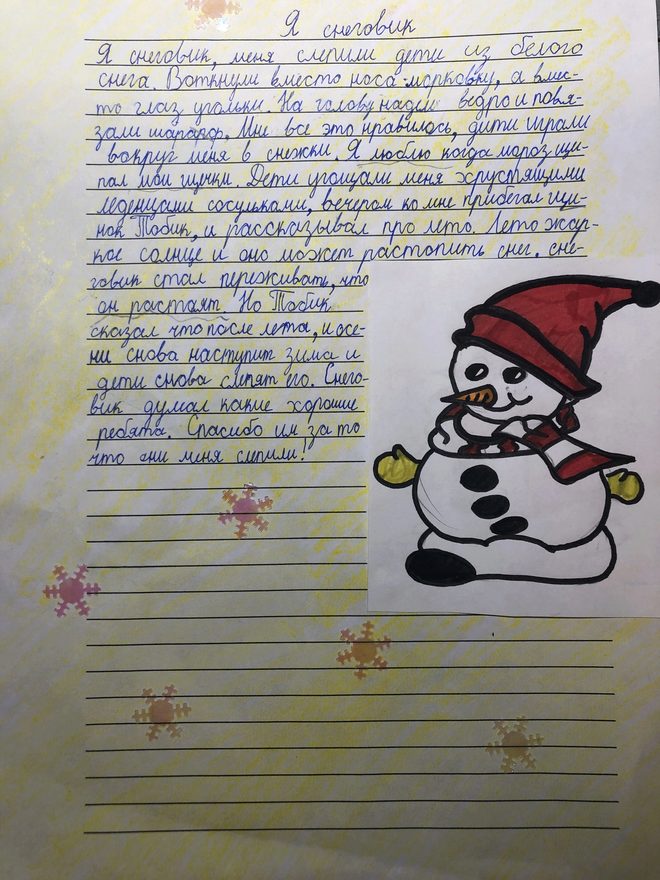 Я снеговик
Я снеговик, меня слепили дети из белого
снега. Воткнули вместо носа морковку, а вмес-
то глаз угольки. На голову надели ведро и повя-
зали шарфф. Мне все это нравилось, дити играли
вокруг меня в снежки. Я люблю когда мороз щи-
пал мои щечки. Дети угощали меня хрустящими
леденцами сосульками, вечером ко мне прибегал щи-
нок Тобик, и рассказывал про лето. Лето жар-
кое солнце и оно может растопить снег. Сне-
говик стал переживать, что
он растаят. Но Тобик
сказал что после лета, и осе-
ни снова наступит зима и
дети снова слепят его. Снего-
вик думал какие хорошие
ребята. Спасибо им, за то
что они меня слепили!